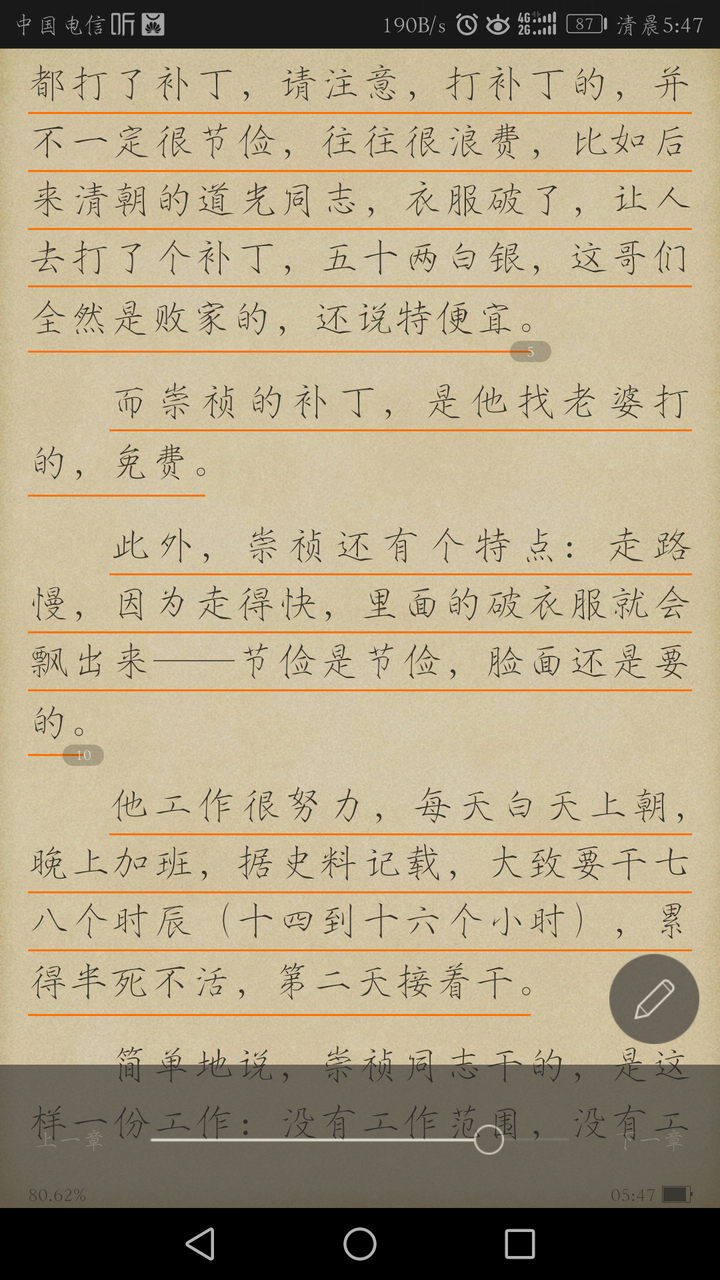 中国电信听 190B/s 4G 2G 87 清晨5:47
都打了补丁，请注意，打补丁的，并
不一定很节俭，往往很浪费，比如后
来清朝的道光同志，衣服破了，让人
去打了个补丁，五十两白银，这哥们
全然是败家的，还说特便宜。
5
而崇祯的补丁，是他找老婆打
的，免费。
此外，崇祯还有个特点：走路
慢，因为走得快，里面的破衣服就会
飘出来——节俭是节俭，脸面还是要
的。
10
他工作很努力，每天白天上朝，
晚上加班，据史料记载，大致要干七
八个时辰（十四到十六个小时），累
得半死不活，第二天接着干。
简单地说，崇祯同志干的，是这
样一份工作：没有工作范围，没有工
上一章 下一章
80.62% 05:47